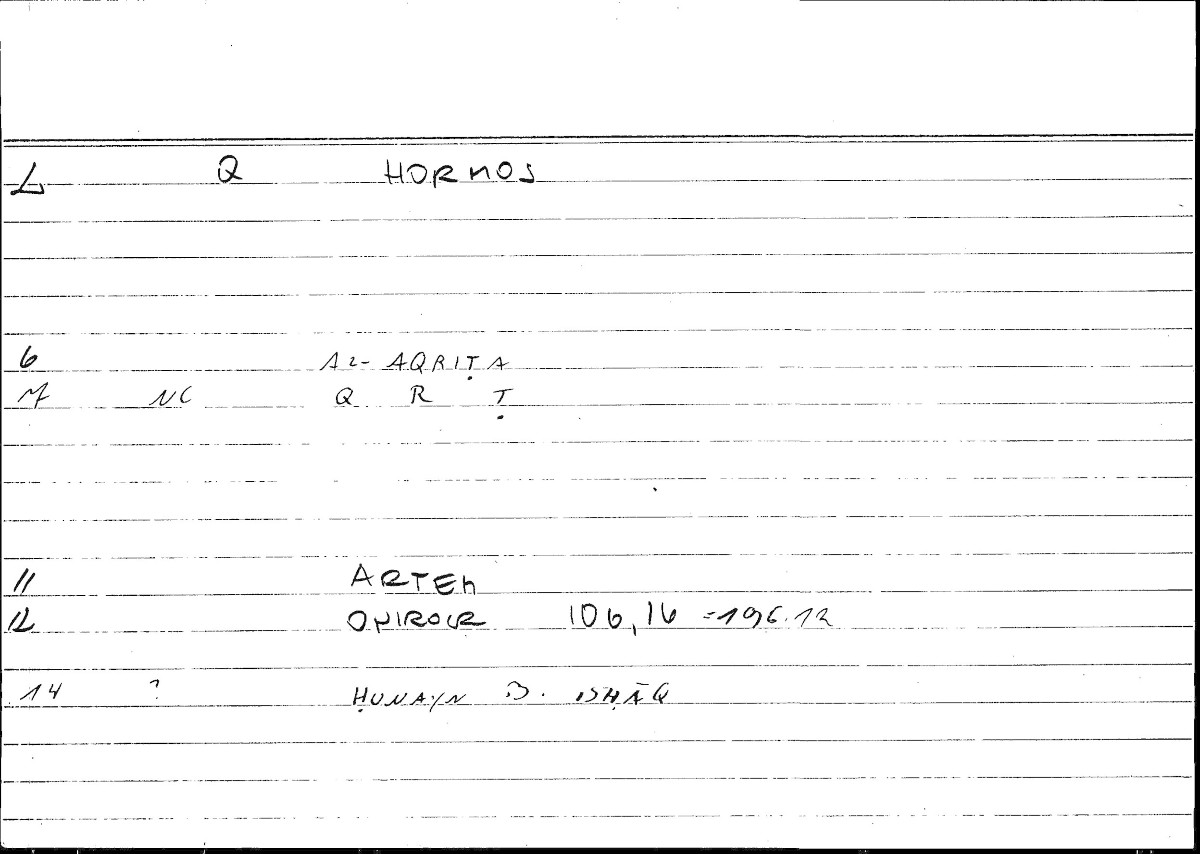 2 Q HORMOS
6 AL-AQRIṬA
7 NC Q R Ṭ
11 ARTEM
12 ONIROCR 106,16 = 196.12
14 ? ḤUNAYN B. ISḤĀQ